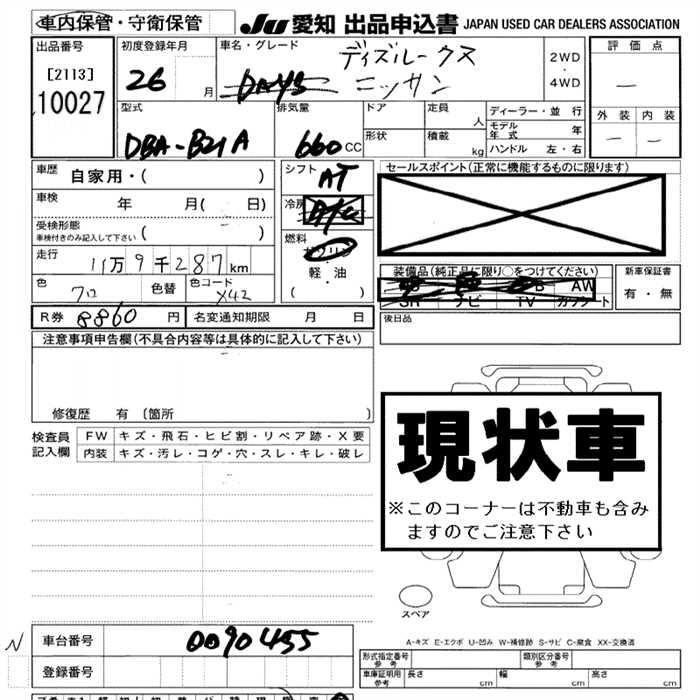 車内保管・守衛保管
JU 愛知 出品申込書 JAPAN USED CAR DEALERS ASSOCIATION
出品番号
[2113]
10027
初度登録年月
26 月
車名・グレード
ディズルークス
DAYS ニッサン
2WD
・
4WD
評価点
—
外装 内装
— —
型式
DBA-B21A
排気量
660 CC
ドア
形状
定員 人
積載 kg
ディーラー・並行
モデル年式 年
ハンドル 左・右
車歴 自家用・( )
車検 年 月( 日)
受検形態
車検付きのみ記入して下さい ( )
走行 11万9千287km
色 クロ 色替 色コード X42
シフト AT
冷房 A/C
燃料
ガソリン
・
軽・油
( )
セールスポイント(正常に機能するものに限ります)
装備品(純正品に限り○をつけてください)
AW
SR ナビ TV カワシート
新車保証書
有・無
R券 8860 円 名変通知期限 月 日
後日品
注意事項申告欄(不具合内容等は具体的に記入して下さい)
修復歴 有〔箇所 〕
現状車
※このコーナーは不動車も含み
ますのでご注意下さい
検査員
記入欄
FW キズ・飛石・ヒビ割・リペア跡・X要
内装 キズ・汚レ・コゲ・穴・スレ・キレ・破レ
スペア
A-キズ E-エクボ U-凹み W-補修跡 S-サビ C-腐食 XX-交換済
N 車台番号 0090455
登録番号
形式指定番号
参考
類別区分番号
参考
車庫証明用
参考
長さ cm 幅 cm 高さ cm